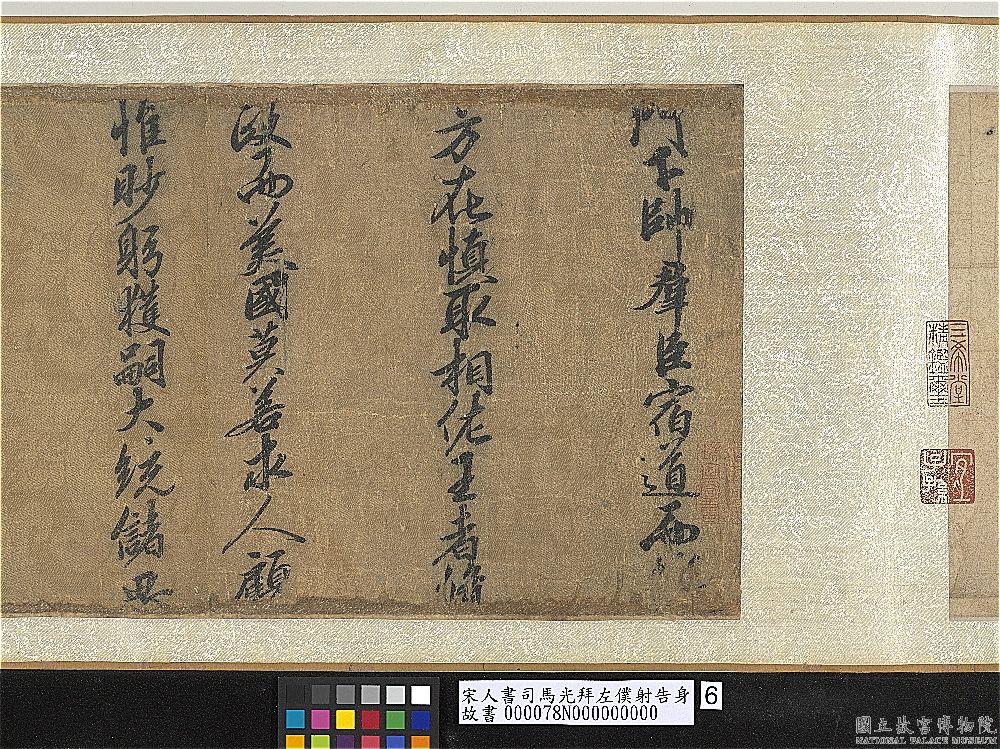 門下帥羣臣宿道而
方在慎取相佐王者脩
政而美國莫若求人顧
惟眇躬獲嗣大統儲
三希堂
精鑑璽
宜子孫
宋人書司馬光拜左僕射告身
故書 000078N000000000
6
國立故宮博物院
NATIONAL PALACE MUSEUM